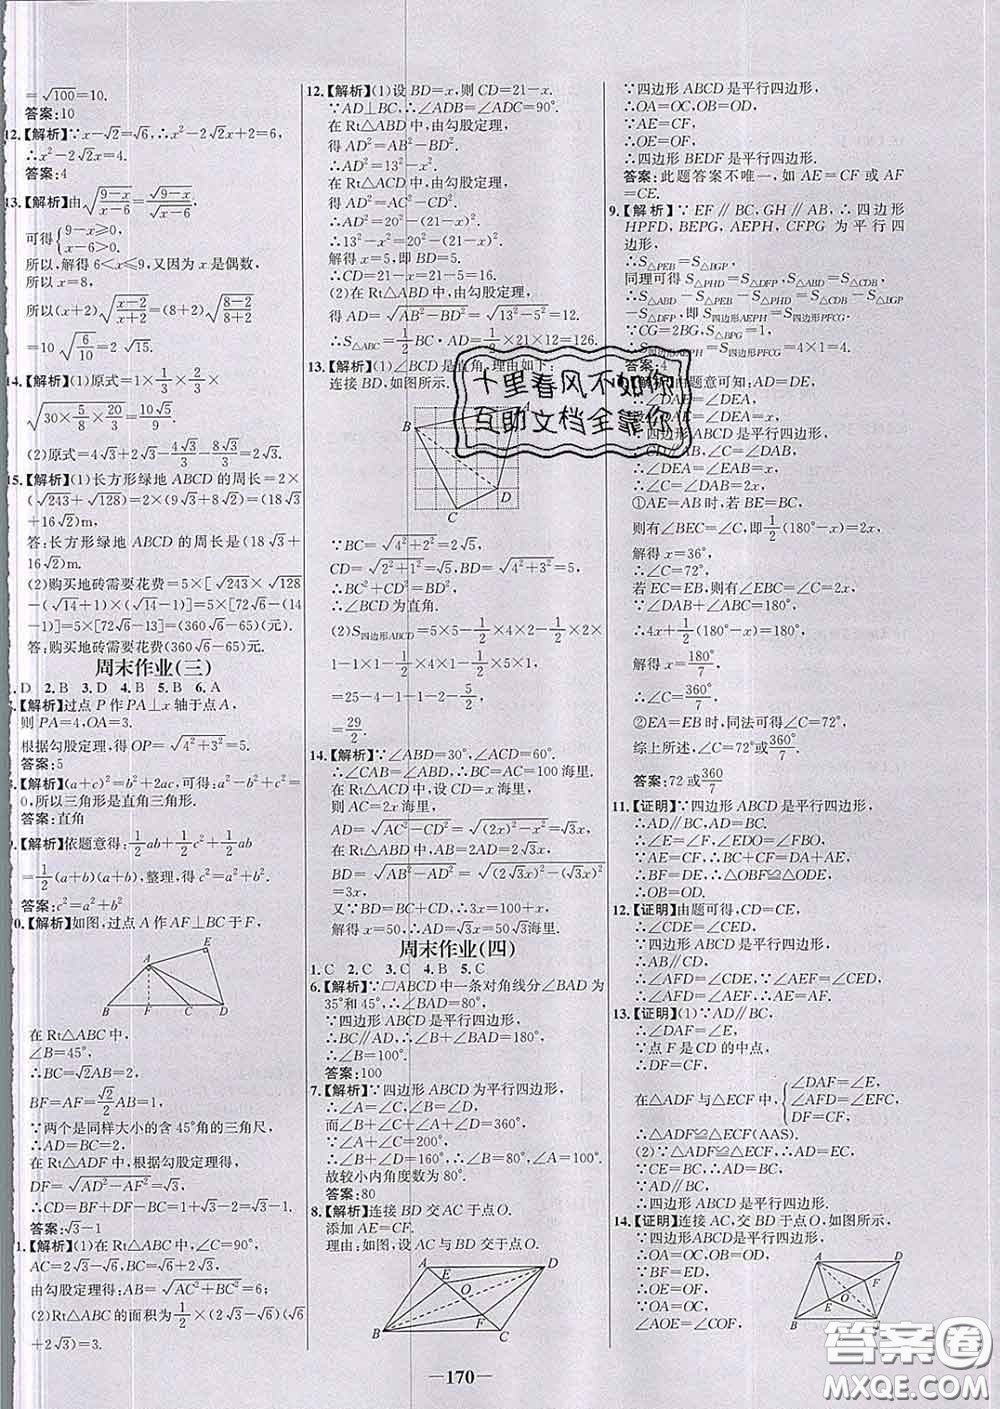 =√100=10.
答案:10
12.【解析】∵x-√2=√6,∴x²-2√2x+2=6,
∴x²-2√2x=4.
答案:4
13.【解析】由√((9-x)/(x-6))=√(9-x)/√(x-6),
可得{9-x≥0, x-6>0.
所以,解得6<x≤9,又因为x是偶数,
所以x=8,
所以(x+2)√((x-2)/(x+2))=(8+2)√((8-2)/(8+2))
=10√(6/10)=2√15.
14.【解析】(1)原式=1×3/2×3/2×
√(30×8/5×20/3)=10√5/9.
(2)原式=4√3+2√3-4√3/3-8√3/3=2√3.
15.【解析】(1)长方形绿地ABCD的周长=2×
(√243+√128)=2×(9√3+8√2)=(18√3
+16√2)m,
答:长方形绿地ABCD的周长是(18√3+
16√2)m.
(2)购买地砖需要花费=5×[√243×√128
-(√14+1)×(√14-1)]=5×[72√6-(14
-1)]=5×[72√6-13]=(360√6-65)(元).
答:购买地砖需要花费(360√6-65)元.
周末作业(三)
D 2.B 3.D 4.B 5.B 6.A
【解析】过点P作PA⊥x轴于点A,
则PA=4,OA=3.
根据勾股定理,得OP=√(4²+3²)=5.
答案:5
【解析】(a+c)²=b²+2ac,可得:a²-b²+c²=
0,所以三角形是直角三角形.
答案:直角
【解析】依题意得:1/2ab+1/2c²+1/2ab
=1/2(a+b)(a+b),整理,得c²=a²+b².
答案:c²=a²+b²
0.【解析】如图,过点A作AF⊥BC于F,
A E B F C D
在Rt△ABC中,
∠B=45°,
∴BC=√2AB=2,
BF=AF=√2/2AB=1,
∵两个是同样大小的含45°角的三角尺,
∴AD=BC=2,
在Rt△ADF中,根据勾股定理得,
DF=√(AD²-AF²)=√3,
∴CD=BF+DF-BC=1+√3-2=√3-1.
答案:√3-1
1.【解析】(1)在Rt△ABC中,∠C=90°,
AC=2√3-√6,BC=√6+2√3,
由勾股定理得:AB=√(AC²+BC²)=6;
(2)Rt△ABC的面积为1/2×(2√3-√6)(√6
+2√3)=3.
12.【解析】(1)设BD=x,则CD=21-x.
∵AD⊥BC,∴∠ADB=∠ADC=90°.
在Rt△ABD中,由勾股定理,
得AD²=AB²-BD²,
∴AD²=13²-x².
在Rt△ACD中,由勾股定理,
得AD²=AC²-CD²,
∴AD²=20²-(21-x)².
∴13²-x²=20²-(21-x)².
解得x=5,即BD=5.
∴CD=21-x=21-5=16.
(2)在Rt△ABD中,由勾股定理,
得AD=√(AB²-BD²)=√(13²-5²)=12.
∴S△ABC=1/2BC·AD=1/2×21×12=126.
13.【解析】(1)∠BCD是直角,理由如下:
连接BD,如图所示.
B A D C
∵BC=√(4²+2²)=2√5,
CD=√(2²+1²)=√5,BD=√(3²+4²)=5,
∴BC²+CD²=BD²,
∴∠BCD为直角.
(2)S四边形ABCD=5×5-1/2×4×2-1/2×2×
1-1×1-1/2×1×4-1/2×5×1
=25-4-1-1-2-5/2
=29/2.
14.【解析】∵∠ABD=30°,∠ACD=60°.
∴∠CAB=∠ABD,∴BC=AC=100海里.
在Rt△ACD中,设CD=x海里,
则AC=2x海里,
AD=√(AC²-CD²)=√((2x)²-x²)=√3x,
在Rt△ABD中,AB=2AD=2√3x,
BD=√(AB²-AD²)=√((2√3x)²-(√3x)²)
=3x,
又∵BD=BC+CD,∴3x=100+x,
解得x=50,∴AD=√3x=50√3海里.
周末作业(四)
1.C 2.C 3.C 4.B 5.C
6.【解析】∵▱ABCD中一条对角线分∠BAD为
35°和45°,∴∠BAD=80°,
∵四边形ABCD是平行四边形,
∴BC∥AD,∴∠B+∠BAD=180°,
∴∠B=100°.
答案:100
7.【解析】∵四边形ABCD为平行四边形,
∴∠A=∠C,∠B=∠D,
而∠B+∠C+∠A+∠D=360°,
∵∠A+∠C=200°,
∴∠B+∠D=160°,∴∠B=∠D=80°,
故较小内角度数为80°.
答案:80
8.【解析】连接BD交AC于点O.
添加AE=CF.
理由:如图,设AC与BD交于点O;
A D E O F B C
∵四边形ABCD是平行四边形,
∴OA=OC,OB=OD,
∵AE=CF,
∴OE=OF,
∴四边形BEDF是平行四边形.
答案:此题答案不唯一,如AE=CF或AF
=CE.
9.【解析】∵EF∥BC,GH∥AB,∴四边形
HPFD,BEPG,AEPH,CFPG为平行四
边形,
∴S△PEB=S△BGP.
同理可得S△PHD=S△DFP,S△ABD=S△CDB,
∴S△ABD-S△PEB-S△PHD=S△CDB-S△BGP
-S△DFP,即S四边形AEPH=S四边形PFCG.
∵CG=2BG,S△BPG=1,
∴S四边形AEPH=S四边形PFCG=4×1=4.
答案:4
【解析】由题意可知:AD=DE,
∴∠DAE=∠DEA,
∵四边形ABCD是平行四边形,
∴CD∥AB,∠DAB=∠C,
∴∠DEA=∠EAB=∠DAE,
∴∠C=∠DAB=2x,
①AE=AB时,若BE=BC,
则有∠BEC=∠C,即1/2(180°-x)=2x,
解得x=36°,
∴∠C=72°,
若EC=EB时,则有∠EBC=∠C=2x,
∵∠DAB+∠ABC=180°,
∴4x+1/2(180°-x)=180°,
解得x=180°/7,
∴∠C=360°/7,
②EA=EB时,同法可得∠C=72°,
综上所述,∠C=72°或360°/7.
答案:72或360/7
11.【证明】∵四边形ABCD是平行四边形,
∴AD∥BC,AD=BC.
∴∠E=∠F,∠EDO=∠FBO,
∵AE=CF,∴AD+AE=CB+CF,
∴BF=DE,∴△OBF≌△ODE,
∴OB=OD.
12.【证明】由题可得,CD=CE,
∴∠CDE=∠CED,
∵四边形ABCD是平行四边形,
∴∠AFD=∠CDE,∵∠AEF=∠CED,
∴∠AFD=∠AEF,∴AE=AF.
13.【证明】(1)∵AD∥BC,
∴∠DAF=∠E,
∵点F是CD的中点,
∴DF=CF,
在△ADF与△ECF中,{∠DAF=∠E, ∠AFD=∠EFC, DF=CF,
∴△ADF≌△ECF(AAS).
(2)∵△ADF≌△ECF,∴AD=EC,
∵CE=BC,∴AD=BC,
∵AD∥BC,
∴四边形ABCD是平行四边形.
14.【证明】连接AC,交BD于点O,如图所示,
∵四边形ABCD是平行四边形,
∴OA=OC,OB=OD,
∵BF=ED,
∴OE=OF,
∵OA=OC,
∴∠AOE=∠COF,
A D F O E B C
十里春风不如你
互助文档全靠你
答案圈
MXQE.COM
—170—